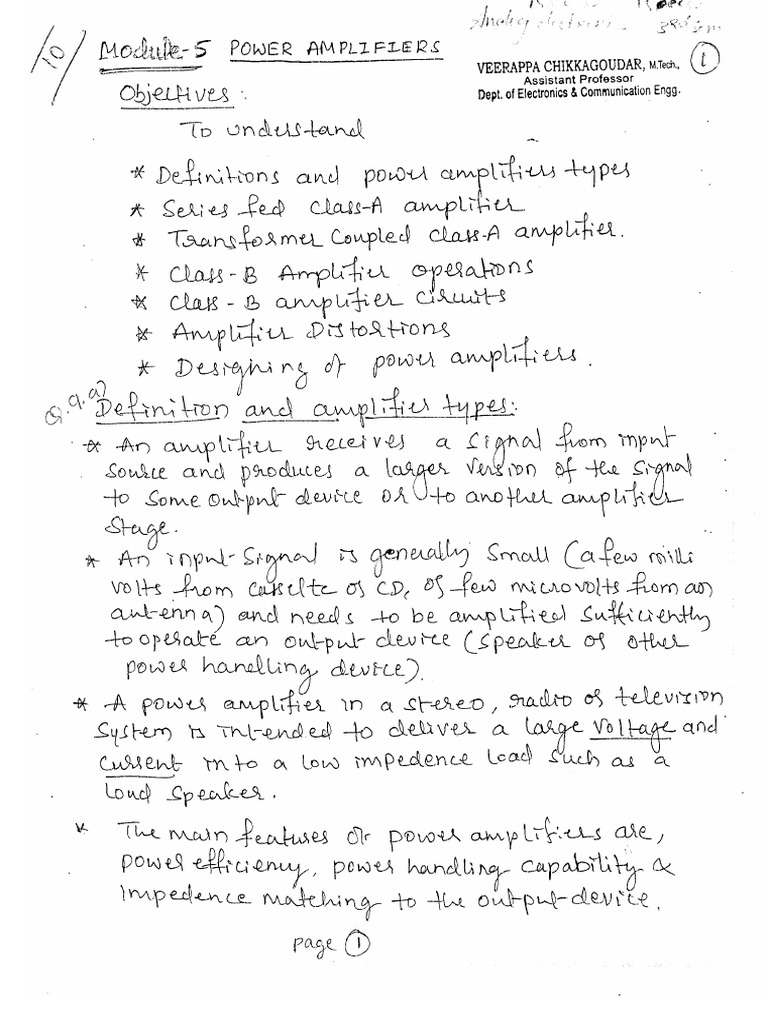 Analog electronics 3rd sem
10
Module-5 POWER AMPLIFIERS
VEERAPPA CHIKKAGOUDAR, M.Tech.,
Assistant Professor
Dept. of Electronics & Communication Engg.
1
Objectives:
To understand
* Definitions and power amplifiers types
* Series fed class-A amplifier
* Transformer Coupled class-A amplifier.
* Class-B Amplifier operations
* Class-B amplifier circuits
* Amplifier Distortions
* Designing of power amplifiers.
Q.9.a)
Definition and amplifier types:
* An amplifier receives a signal from input
source and produces a larger version of the signal
to some output device or to another amplifier
stage.
* An input-signal is generally small (a few milli
volts from cassette or CD, or few microvolts from an
antenna) and needs to be amplified sufficiently
to operate an output device (speaker or other
power handling device).
* A power amplifier in a stereo, radio or television
system is intended to deliver a large voltage and
current into a low impedence load such as a
loud speaker.
* The main features of power amplifiers are,
power efficiency, power handling capability &
impedence matching to the output-device.
page 1